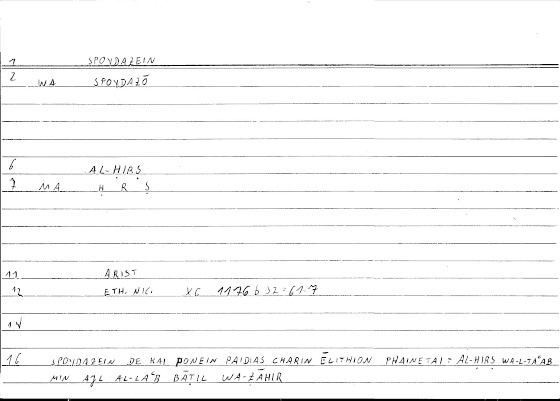 1 SPOYDAZEIN
2 WA SPOYDAZŌ
6 AL-ḤIRṢ
7 MA Ḥ R Ṣ
11 ARIST
12 ETH. NIC. X6 1176 b 32 = 61.7
14
16 SPOYDAZEIN DE KAI PONEIN PAIDIAS CHARIN ĒLITHION PHAINETAI = AL-ḤIRṢ WA-L-TAʿAB
MIN AǦL AL-LAʿB BĀṬIL WA-ẒĀHIR